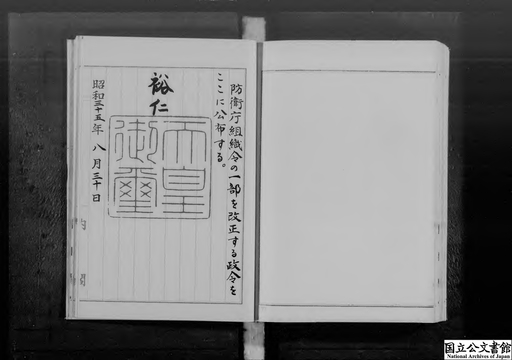 防衛庁組織令の一部を改正する政令を
ここに公布する。
裕仁
天皇
御璽
昭和三十五年八月三十日
内閣
国立公文書館
National Archives of Japan